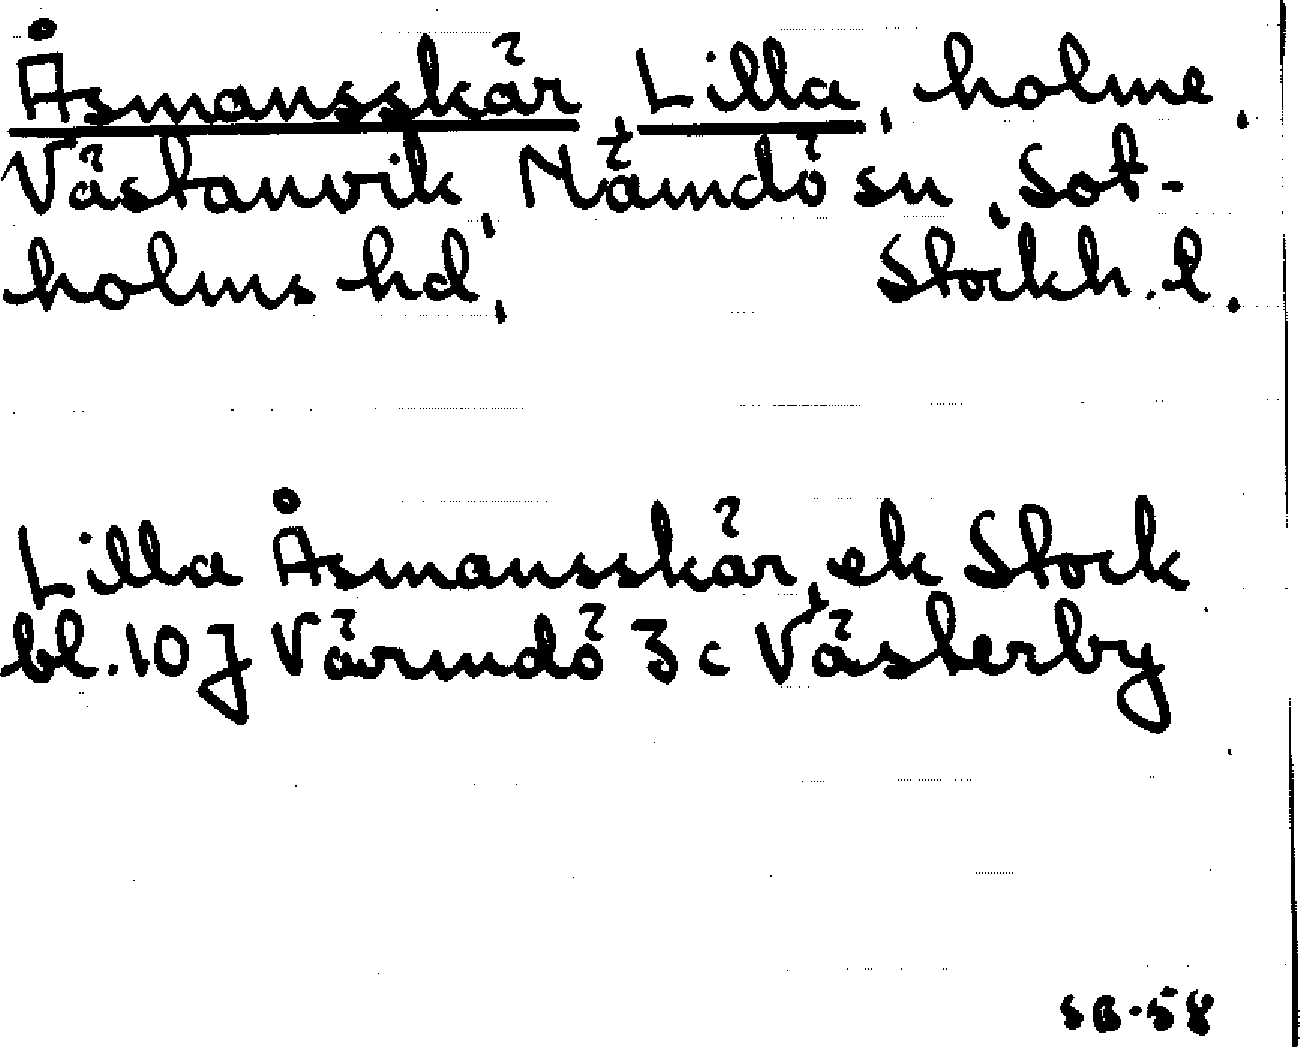 Åsmansskär, Lilla, holme.
Västanvik, Nämdö sn, Sot-
holms hd, Stockh. l.
Lilla Åsmansskär, ek Stock
bl. 10 J Värmdö 3 c Västerby
SB-58